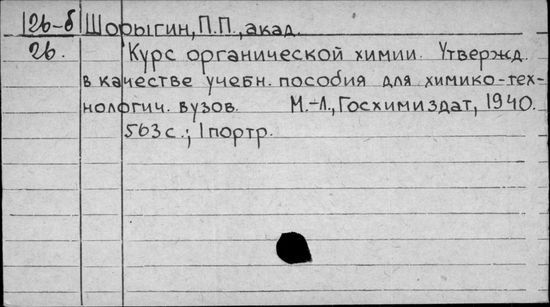 126-б Шорыгин, П.П., акад.
26. Курс органической химии. Утвержд.
в качестве учебн. пособия для химико-тех-
нологич. вузов. М.-Л., Госхимиздат, 1940.
563 с.; 1 портр.